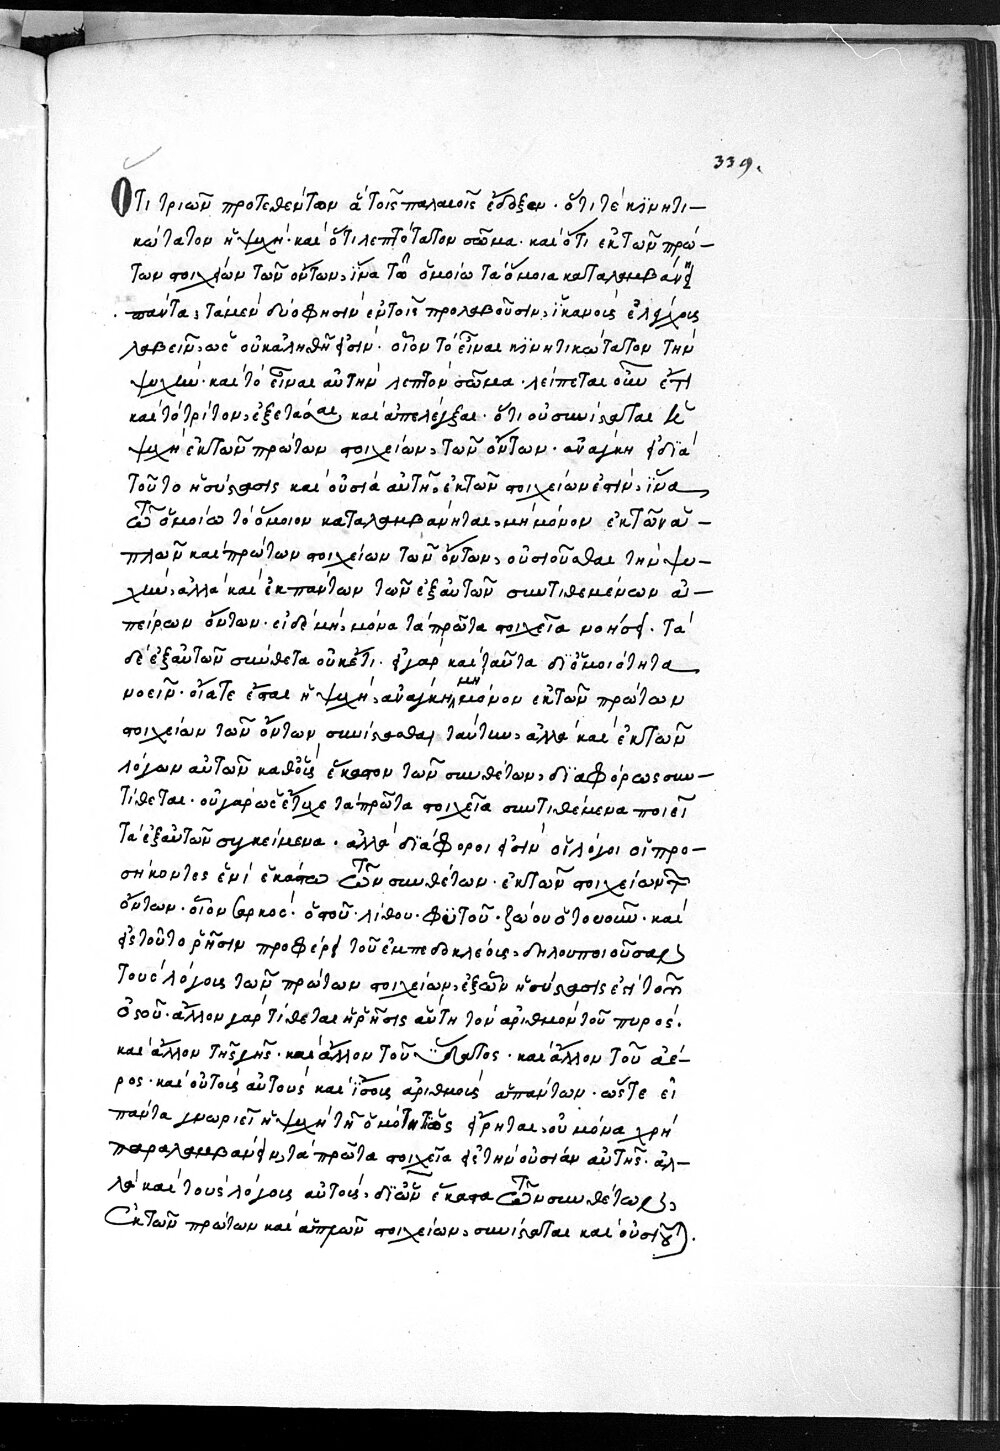 339.
Ὅτι τριῶν προτεθέντων ἃ τοῖς παλαιοῖς ἔδοξεν· ὅτι τὲ κινητι-
κώτατον ἡ ψυχή· καὶ ὅτι λεπτότατον σῶμα· καὶ ὅτι ἐκ τῶν πρώ-
των στοιχείων τῶν ὄντων, ἵνα τῷ ὁμοίω τὰ ὅμοια καταλαμβάνῃ
πάντα, τὰ μὲν δύο φησὶν ἐν τοῖς προλαβοῦσιν, ἱκανοὺς ἐλέγχους
λαβεῖν, ὡς οὐκ ἀληθῆ εἰσίν· οἷον τὸ εἶναι κινητικώτατον τὴν
ψυχήν· καὶ τὸ εἶναι αὐτὴν λεπτὸν σῶμα· λείπεται οὖν ἔτι
καὶ τὸ τρίτον, ἐξετάσαι καὶ ἀπελέγξαι· ὅτι οὐ συνίσταται ἡ
ψυχὴ ἐκ τῶν πρώτων στοιχείων, τῶν ὄντων· ἀνάγκη εἰ διὰ
τοῦτο ἡ σύστασις καὶ οὐσία αὐτῆς ἐκ τῶν στοιχείων ἐστὶν, ἵνα
τῷ ὁμοίω τὸ ὅμοιον καταλαμβάνηται, μὴ μόνον ἐκ τῶν ἁ-
πλῶν καὶ πρώτων στοιχείων τῶν ὄντων, οὐσιοῦσθαι τὴν ψυ-
χὴν, ἀλλὰ καὶ ἐκ πάντων τῶν ἐξ αὐτῶν συντιθεμένων ἀ-
πείρων ὄντων· εἰ δὲ μὴ, μόνα τὰ πρῶτα στοιχεῖα νοήσει· τὰ
δὲ ἐξ αὐτῶν σύνθετα οὐκέτι· εἰ γὰρ καὶ ταῦτα δι' ὁμοιότητα
νοεῖν· οἵα τε ἔσται ἡ ψυχὴ, ἀνάγκη μὴ μόνον ἐκ τῶν πρώτων
στοιχείων τῶν ὄντων συνίστασθαι ταύτην, ἀλλὰ καὶ ἐκ τῶν
λόγων αὐτῶν καθ' οὓς ἕκαστον τῶν συνθέτων, διαφόρως συν-
τίθεται· οὐ γὰρ ὡς ἔτυχε τὰ πρῶτα στοιχεῖα συντιθέμενα ποιεῖ
τὰ ἐξ αὐτῶν συγκείμενα· ἀλλὰ διάφοροι εἰσὶν οἱ λόγοι οἱ προ-
σήκοντες ἑνὶ ἑκάστω τῶν συνθέτων· ἐκ τῶν στοιχείων τῶν
ὄντων· οἷον σαρκός· ὀστοῦ· λίθου· φυτοῦ· ζώου ὁτουοῦν· καὶ
εἰς τοῦτο ῥῆσιν προφέρει τοῦ ἐμπεδοκλέους, δηλοποιοῦσαν
τοὺς λόγους τῶν πρώτων στοιχείων, ἐξ ὧν ἡ σύστασις ἐστὶ τοῦ
ὀστοῦ· ἄλλον γὰρ τίθεται ἡ ῥῆσις αὕτη τὸν ἀριθμὸν τοῦ πυρός·
καὶ ἄλλον τῆς γῆς· καὶ ἄλλον τοῦ ὕδατος· καὶ ἄλλον τοῦ ἀέ-
ρος· καὶ οὕτως αὐτοὺς καὶ ἴσοις ἀριθμοῖς ἁπάντων· ὥστε εἰ
πάντα γνωριεῖ ἡ ψυχὴ τῇ ὁμοιότητι ὡς εἴρηται, οὐ μόνα χρὴ
παραλαμβάνειν, τὰ πρῶτα στοιχεῖα εἰς τὴν οὐσίαν αὐτῆς· ἀλ-
λὰ καὶ τοὺς λόγους αὐτοὺς, δι' ὧν ἕκαστα τῶν συνθέτων,
ἐκ τῶν πρώτων καὶ ἁπλῶν στοιχείων, συνίσταται καὶ οὐσιοῦται.